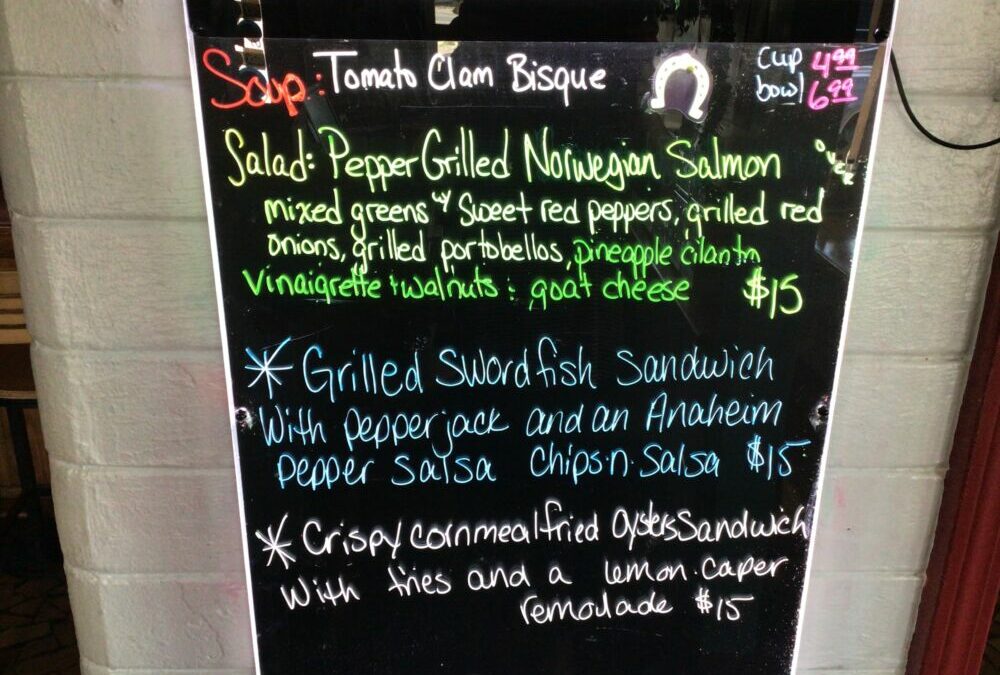 Soup: Tomato Clam Bisque
cup 4.99
bowl 6.99
Salad: Pepper Grilled Norwegian Salmon over
mixed greens w/ Sweet red peppers, grilled red
onions, grilled portobellos, pineapple cilantro
Vinaigrette + walnuts : goat cheese $15
* Grilled Swordfish Sandwich
With pepperjack and an Anaheim
pepper Salsa chips.n.Salsa $15
* Crispy cornmeal fried Oysters Sandwich
With fries and a lemon.caper
remoulade $15